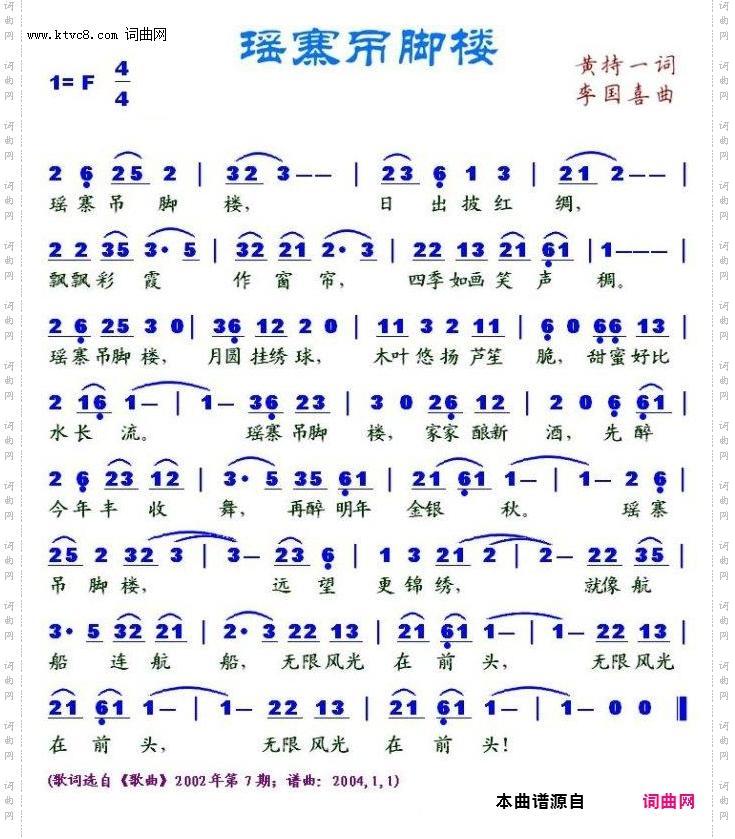 www.ktvc8.com 词曲网
瑶寨吊脚楼
1= F 4/4
黄持一词
李国喜曲
2 6 25 2 | 32 3—— | 23 6 1 3 | 21 2—— |
瑶寨吊 脚 楼, 日 出 披红 绸,
2 2 35 3· 5 | 32 21 2· 3 | 22 13 21 61 | 1——— |
飘飘彩 霞 作 窗 帘, 四季如画笑 声 稠。
2 6 25 3 0 | 36 12 2 0 | 11 3 2 11 | 6 0 66 13 |
瑶寨吊脚 楼, 月圆 挂绣 球, 木叶 悠 扬 芦笙 脆, 甜蜜好比
2 16 1— | 1— 36 23 | 3 0 26 12 | 2 0 6 61 |
水长 流。 瑶寨吊脚 楼, 家家 酿新 酒, 先 醉
2 6 23 12 | 3· 5 35 61 | 21 61 1— | 1— 2 6 |
今年丰 收 舞, 再醉 明年 金银 秋。 瑶寨
25 2 32 3 | 3— 23 6 | 1 3 21 2 | 2— 22 35 |
吊 脚楼, 远 望 更锦绣, 就像航
3· 5 32 21 | 2· 3 22 13 | 21 61 1— | 1— 22 13 |
船 连航 船, 无限 风光 在 前 头, 无限风光
21 61 1— | 1— 22 13 | 21 61 1— | 1— 0 0 ‖
在 前 头, 无限 风光 在 前 头!
(歌词选自《歌曲》2002年第7期; 谱曲: 2004,1,1)
本曲谱源自 词曲网